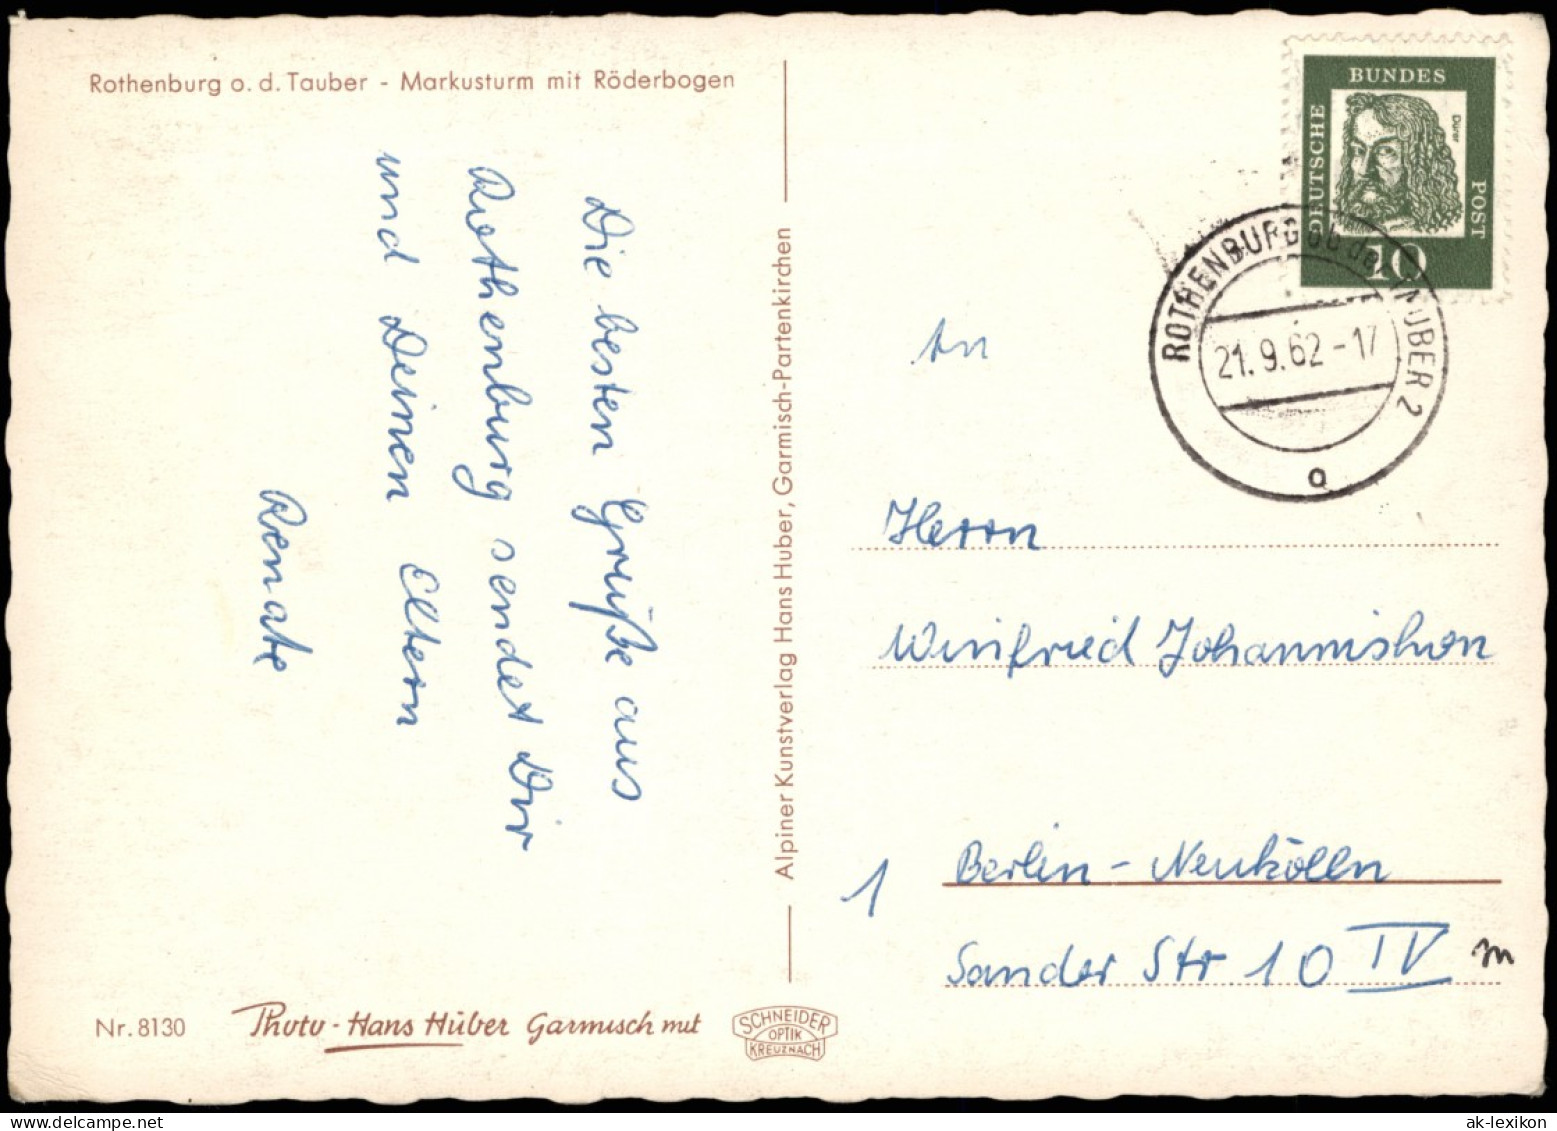 Rothenburg o. d. Tauber - Markusturm mit Röderbogen
Die besten Grüße aus
Rothenburg sendet Dir
und Deinen Eltern
Renate
Alpiner Kunstverlag Hans Huber, Garmisch-Partenkirchen
DEUTSCHE
BUNDES
POST
Dürer
10
ROTHENBURG ob der TAUBER 2
21.9.62-17
a
An
Herrn
Winfried Johannishon
1 Berlin-Neukölln
Sander Str 10 IV
Nr. 8130
Photo-Hans Huber Garmisch mit
SCHNEIDER
OPTIK
KREUZNACH
ak-lexikon